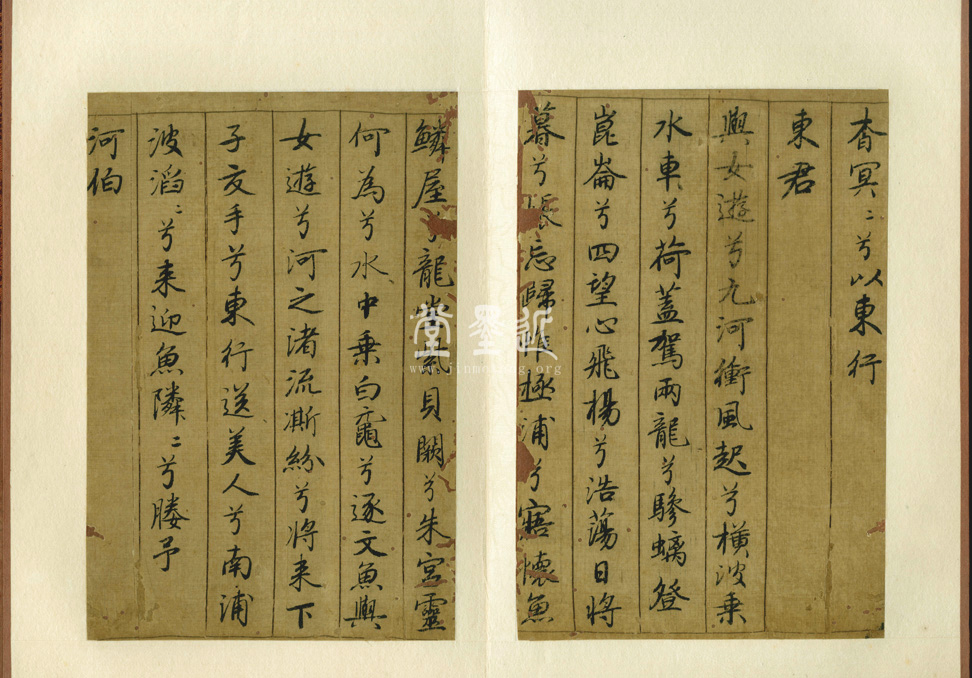 杳冥〻兮以東行
東君
與女遊兮九河衝風起兮橫波乗
水車兮荷蓋駕兩龍兮驂螭登
崑崙兮四望心飛楊兮浩蕩日將
暮兮悵忘歸惟極浦兮寤懷魚
鱗屋兮龍堂紫貝闕兮朱宮靈
何為兮水中乗白黿兮逐文魚與
女遊兮河之渚流凘紛兮將来下
子交手兮東行送美人兮南浦
波滔〻兮来迎魚隣〻兮媵予
河伯
近墨堂
www.jinmotang.org